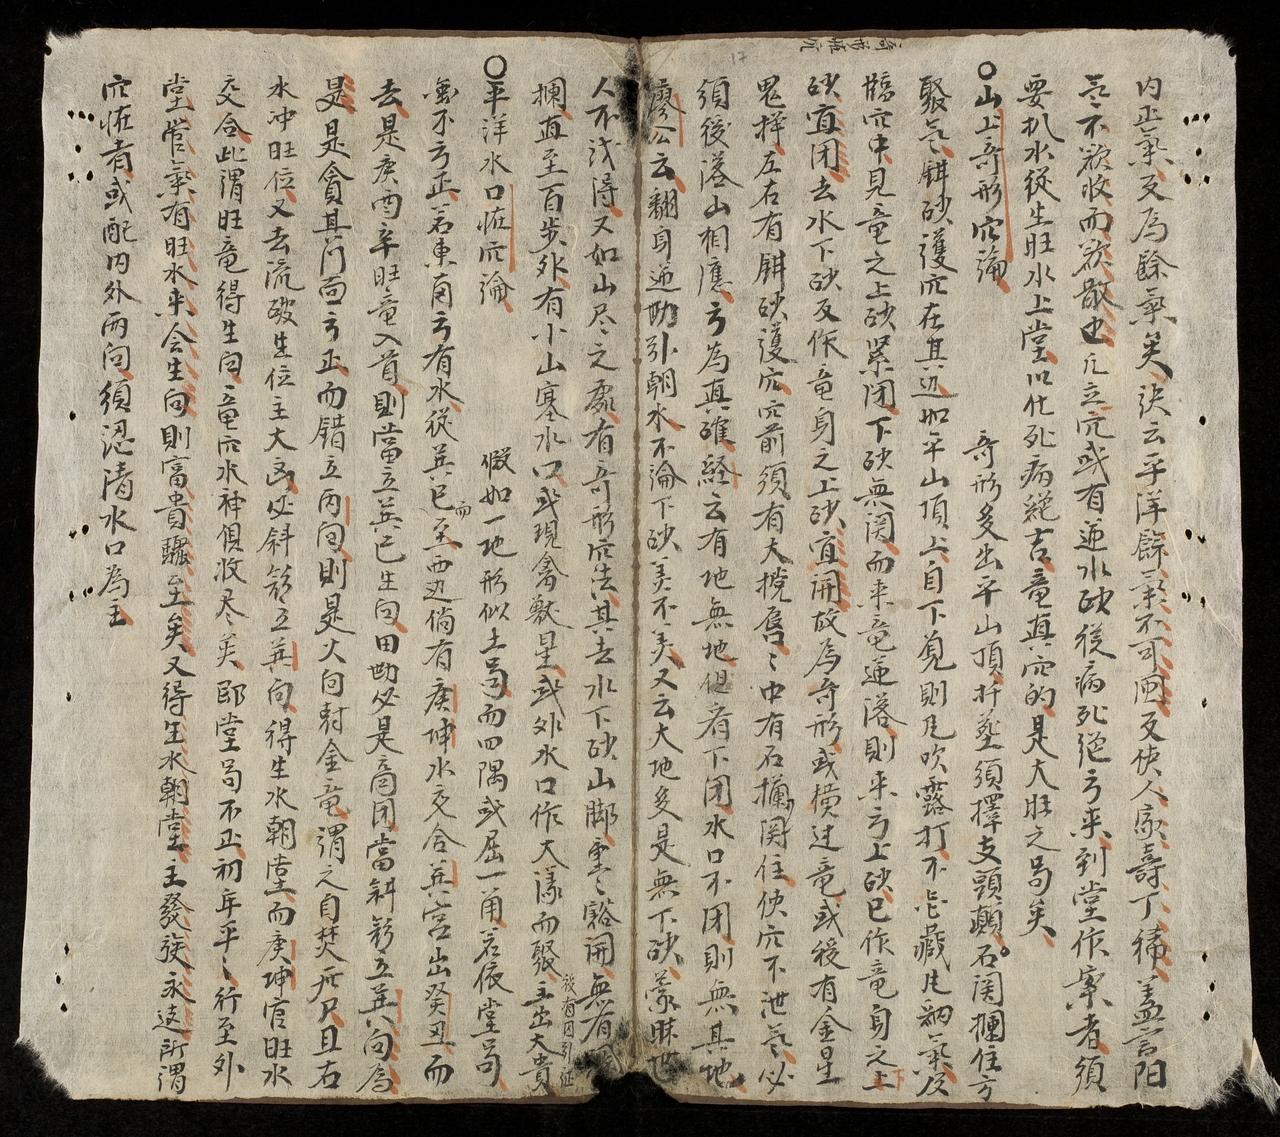 內正氣反為餘氣矣訣云平洋餘氣不可囬反使人家壽丁稀蓋言陽
气不欲收而欲散也凡立穴或有逆水砂從病死絕方來到堂作案者須
要扒水從生旺水上堂以化死病絕吉竜真穴的是大旺之局矣
○山上奇形穴論
奇形多出平山頂扦塟須擇支頭顛石関攔住方
聚气餠砂護穴在其边如平山頂上自下覓則凡吹露打不忌藏凡納氣須
臨穴中見竜之上砂累闭下砂無関而來竜逆落則來方上砂已作竜身之上
砂宜闭去水下砂反作竜身之上砂宜開故為奇形或横过竜或後有金星
鬼撑左右有餠砂護穴穴前須有大攪唇〻中有石攔関住使穴不泄气必
須後落山相應方為真確経云有地無地但看下闭水口不闭則無其地
廖公云翻身逆勢引朝水不論下砂美不美又云大地多是無下砂蒙昧世
人不浅得又如山尽之處有奇形穴法其去水下砂山脚重〻谿開無有関
攔直至百步外有小山塞水口或現禽獸星或外水口作大漾而聚主出大貴
後有因引証
○平洋水口怪穴論
假如一地形似土局而四隅或屈一角若依堂局
為不方正若東南方有水從巽巳至西边倘有庚坤水交合巽宮出癸丑而
而
去是庚酉辛旺竜入首則當立巽巳生向田勘必是啇闭當斜𫝆立巽向為
是是貪其门面方正而錯立丙向則是火向尅金竜謂之自焚死尸且右
水冲旺位又去流破生位主大凶必斜𫝆立巽向得生水朝堂而庚坤官旺水
交合此謂旺竜得生向竜穴水神俱收尽矣即堂局不正初年平〻行至外
堂管氣有旺水來会生向則富貴驟至矣又得生水朝堂主發族永遠所謂
穴怪者或配內外两向須認清水口為主